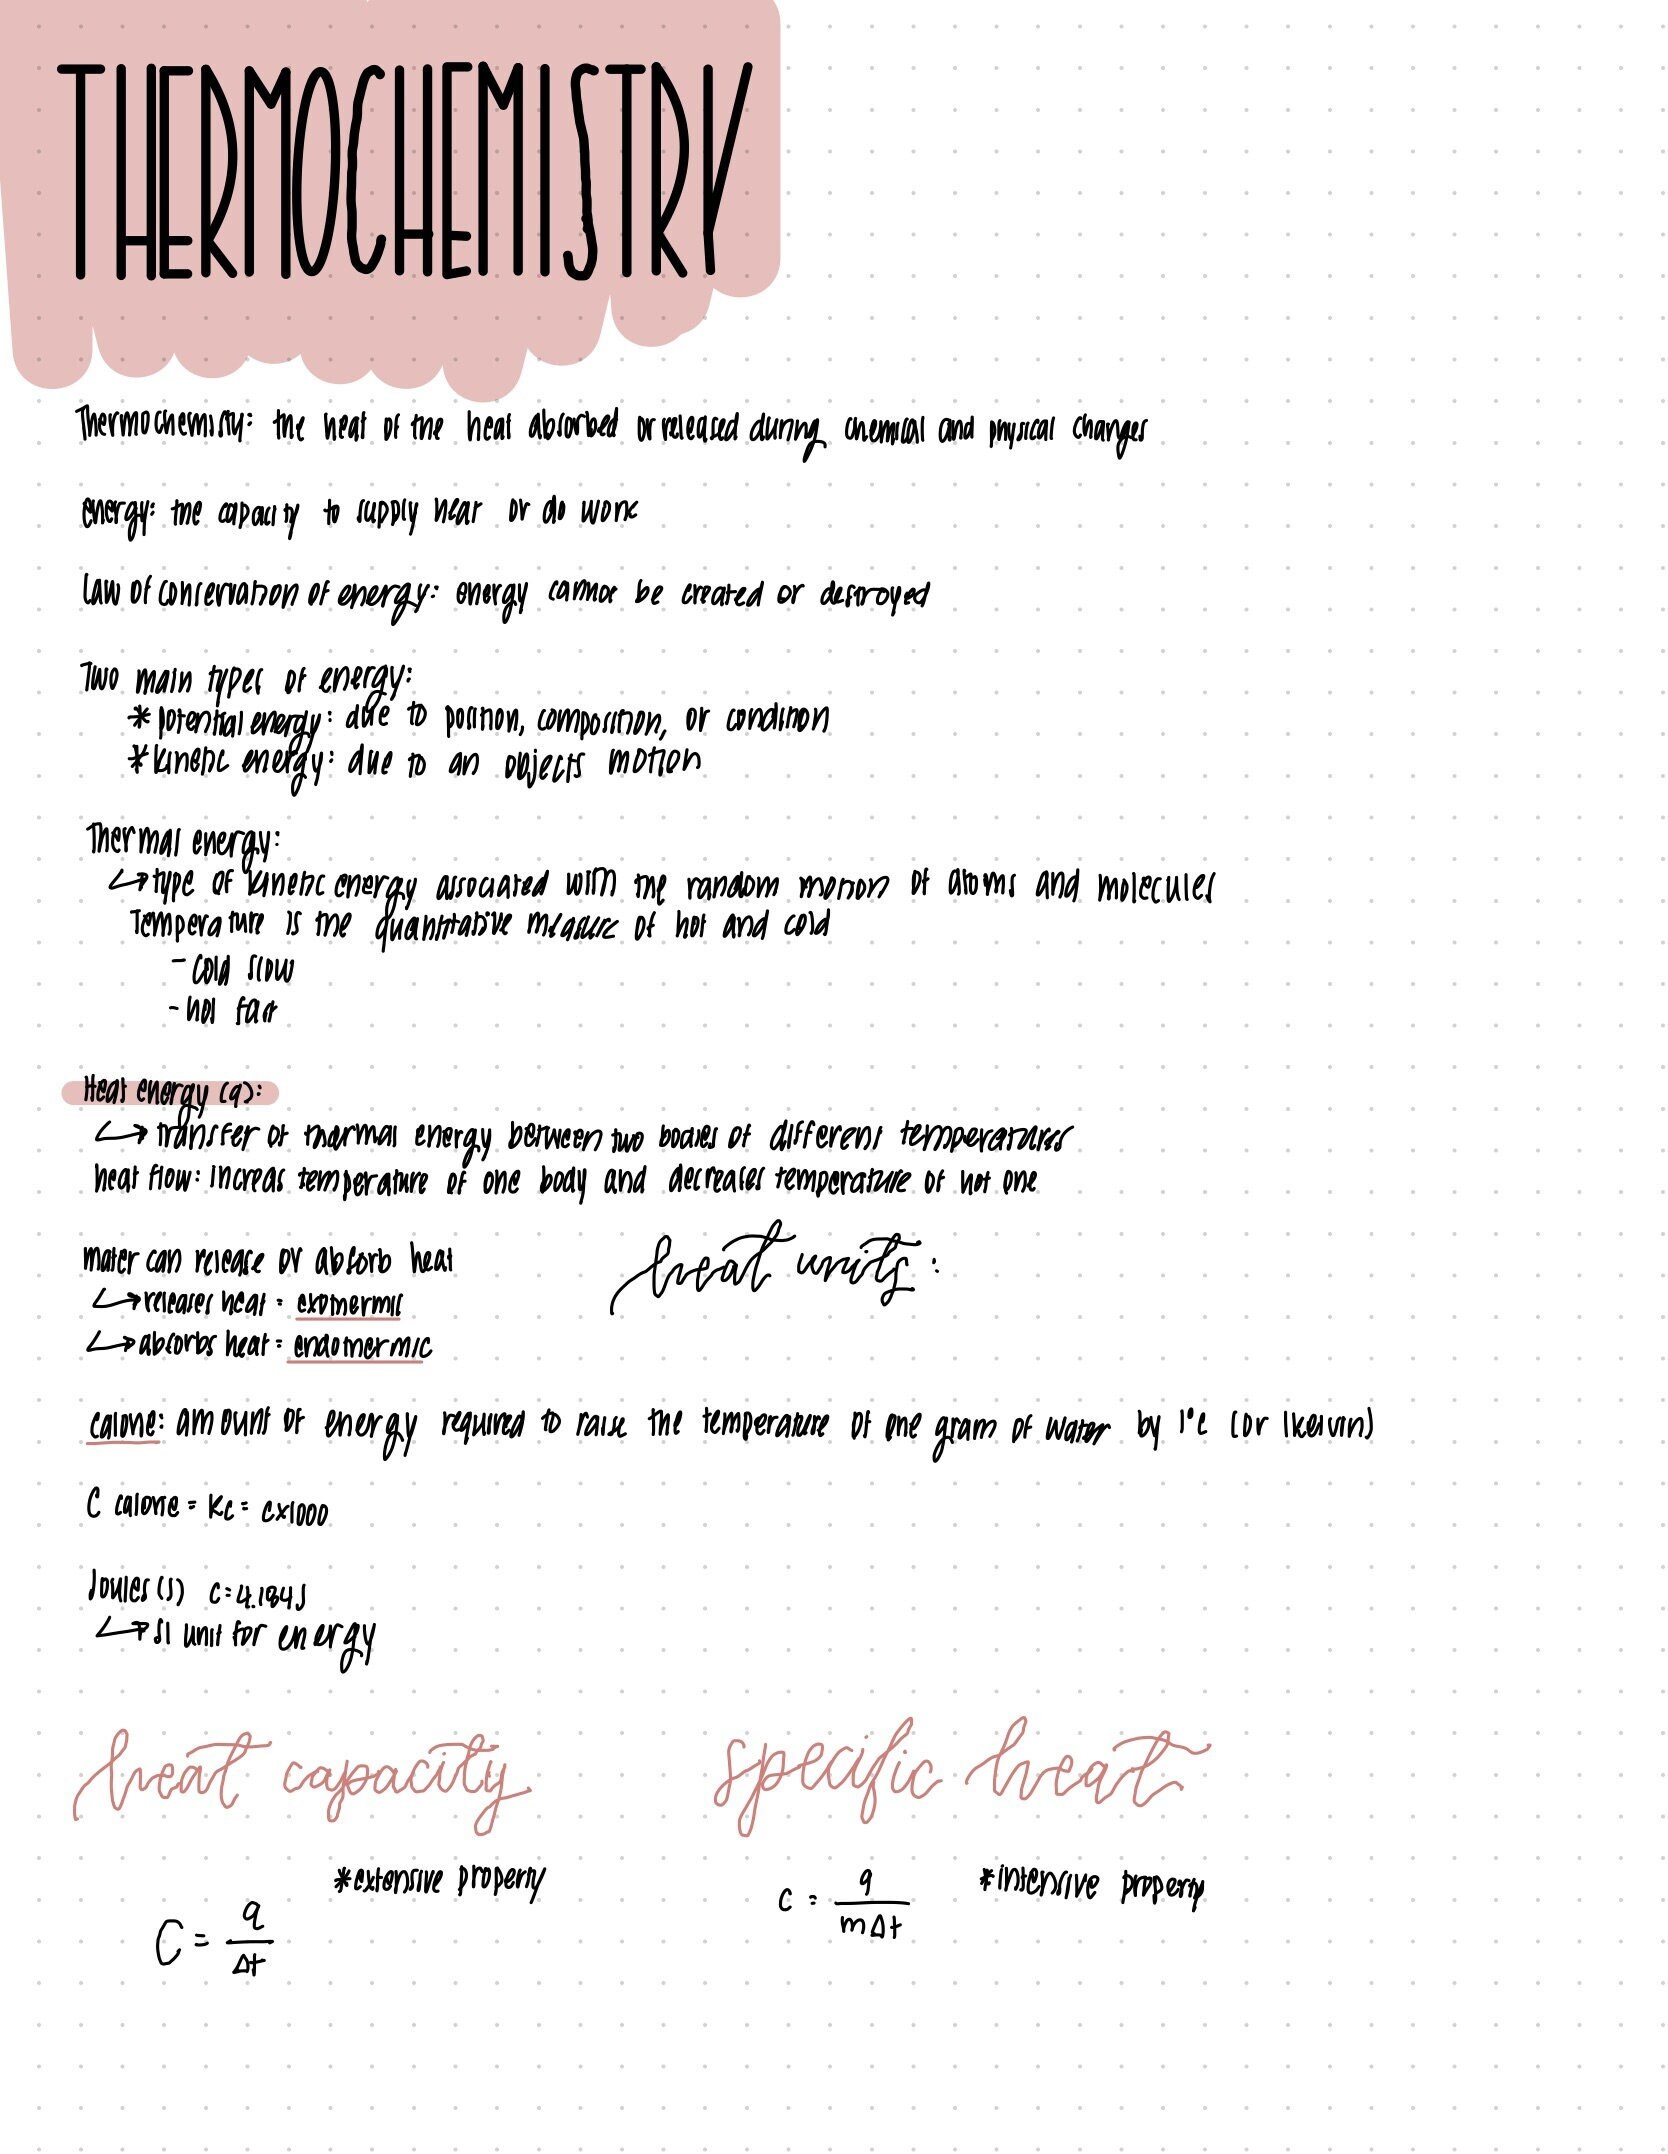 THERMOCHEMISTRY
Thermochemisty: the heat of the heat absorbed or released during chemical and physical changes
energy: the capacity to supply hear or do work
Law of conservation of energy: energy cannot be created or destroyed
Two main types of energy:
* potential energy: due to position, composition, or condition
* kinetic energy: due to an objects motion
Thermal energy:
↳ type of kinetic energy associated with the random motion of atoms and molecules
Temperature is the quantitative measure of hot and cold
- cold slow
- hot fast
Heat energy (q):
↳ transfer of thermal energy between two bodies of different temperatures
heat flow: increas temperature of one body and decreases temperature of hot one
mater can release or absorb heat
heat units:
↳ releases heat = exothermic
↳ absorbs heat = endothermic
calorie: amount of energy required to raise the temperature of one gram of water by 1°C (or 1 kelvin)
C calorie = Kc = c×1000
Joules (J) c = 4.184J
↳ SI unit for energy
heat capacity specific heat
* extensive property
C = q / Δt
c = q / mΔt * intensive property